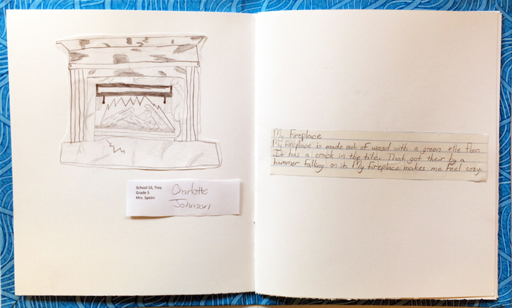 School 16, Troy
Grade 5
Mrs. Speics
Charlotte
Johnson
My Fireplace
My fireplace is made out of wood with a green tile floor.
It has a crack in the tiles. That got their by a
hammer falling on it. My fireplace makes me feel cozy.